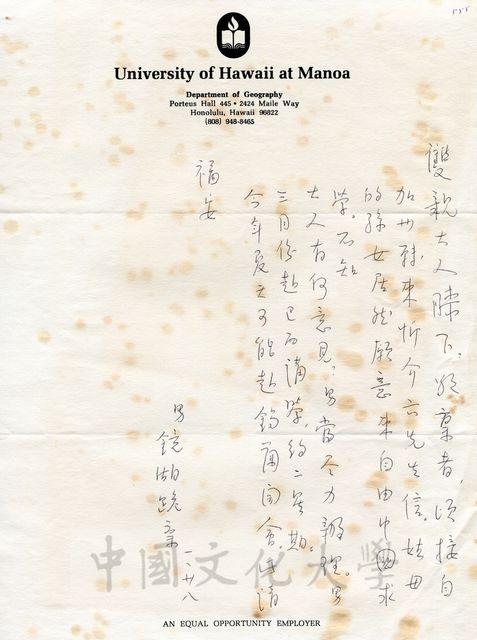 University of Hawaii at Manoa
Department of Geography
Porteus Hall 445 • 2424 Maile Way
Honolulu, Hawaii 96822
(808) 948-8465
雙親大人膝下：敬稟者，頃接自
加州轉來忻介六先生信。姑母
的孫女居然願意來自由中國求
學。不知
大人有何意見？男當尽力辦理。男
三月份赴巴西講學，約二星期。
今年夏天可能赴錫蘭開會。此請
福安
男
鏡湖跪稟
一、廿八
中國文化大學
AN EQUAL OPPORTUNITY EMPLOYER